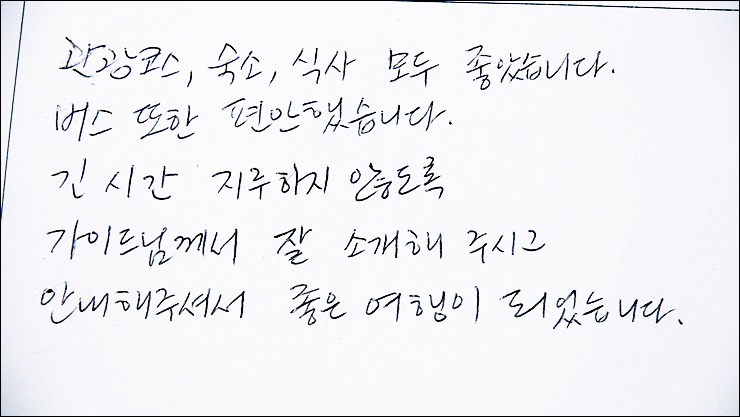 관광코스, 숙소, 식사 모두 좋았습니다.
버스 또한 편안했습니다.
긴 시간 지루하지 않도록
가이드님께서 잘 소개해 주시고
안내해주셔서 좋은 여행이 되었습니다.